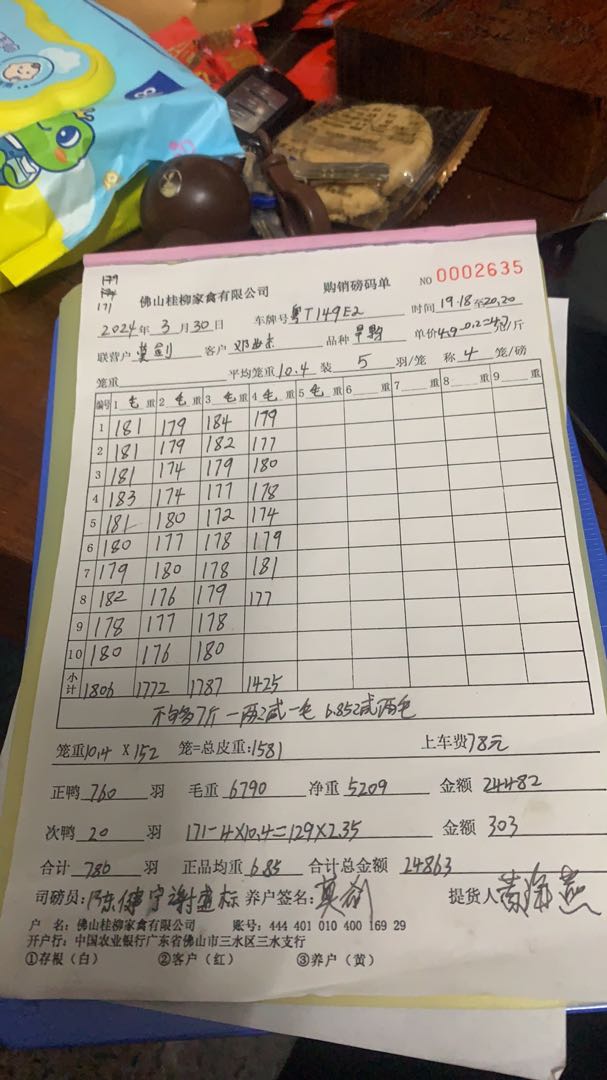 179
171
佛山桂柳家禽有限公司 购销磅码单 NO 0002635
2024年 3月30日 车牌号 粤T149E2 时间 19.18至20.20
联营户 莫剑 客户 邓 品种 早鸭 单价4.9-0.2=4.7元/斤
笼重 平均笼重10.4 装 5 羽/笼 称 4 笼/磅
编号 1 毛 重 2 毛 重 3 毛 重 4 毛 重 5 毛 重 6 重 7 重 8 重 9 重
1 181 179 184 179
2 181 179 182 177
3 181 174 179 180
4 183 174 177 178
5 181 180 172 174
6 180 177 178 179
7 179 180 178 181
8 182 176 179 177
9 178 177 178
10 180 176 180
小计 1806 1772 1787 1425
不够7斤 一两减一毛 6.85减两毛
笼重10.4 X 152 笼=总皮重:1581 上车费78元
正鸭 760 羽 毛重 6790 净重 5209 金额 24482
次鸭 20 羽 171-4×10.4=129×2.35 金额 303
合计 780 羽 正品均重 6.85 合计总金额 24863
司磅员: 陈健宁 谢 标 养户签名: 莫剑 提货人 黄海燕
户 名: 佛山桂柳家禽有限公司 账号: 444 401 010 400 169 29
开户行: 中国农业银行广东省佛山市三水区三水支行
①存根(白) ②客户(红) ③养户(黄)